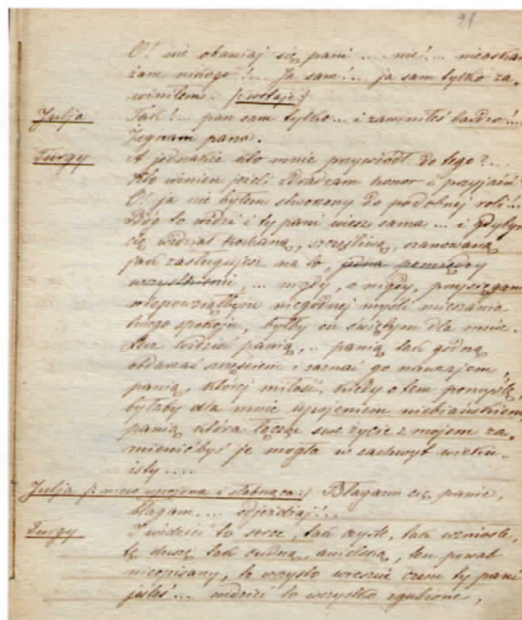 21
O! nie obawiaj się pani .... nie!... nieoskar-
żam nikogo!... Ja sam!... ja sam tylko za-
winiłem. (: wstaje :)
Julja Tak!... pan sam tylko... i zawiniłeś bardzo!...
Żegnam pana.
Turgy A jednakże kto mnie przywiódł do tego?...
Kto winien jeżeli zdradzam honor i przyjaźń?
O! ja nie byłem stworzony do podobnej roli!...
Bóg to widzi i ty pani wiesz sama... i gdybym
cię widział kochaną, szczęśliwą, szanowaną
jak zasługujesz na to, jedna pomiędzy
wszystkiemi, ... nigdy, o nigdy, przysięgam
niepowziąłbym niegodnej myśli mieszania
twego spokoju, byłby on świętym dla mnie.
Ale widzieć panią, .. panią tak godną
obdarzać szczęściem i zaznać go nawzajem,
panią, której miłość, kiedy o tem pomyślę,
byłaby dla mnie upojeniem niebiańskiem,
panią, która łącząc swe życie z mojem za-
mienić byś je mogła w zachwyt wieku-
isty ....
Julja (: mowa upojona i słabnąca :) Błagam cię, panie,
błagam.... odjeżdżaj!...
Turgy I widzieć to serce, tak czyste, tak wzniosłe,
tę duszę tak cudną, anielską, ten powab
nieopisany, to wszystko wreszcie czem ty pani
jesteś!... widzieć to wszystko zgubione,